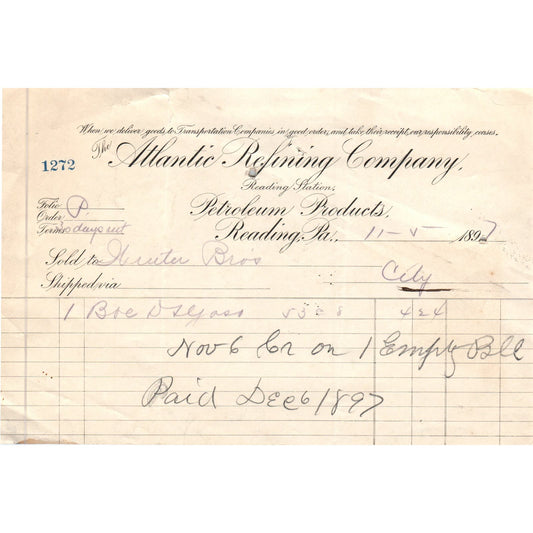 When we deliver goods to Transportation Companies in good order, and take their receipt, our responsibility ceases.
1272
The Atlantic Refining Company,
Reading Station,
Petroleum Products.
Folio P.
Order
Terms 30 days net
Reading, Pa., 11-5 1897
Sold to Hunter Bros
City
Shipped via
1 4 24
Nov 6 Cr on 1 Empty Bll
Paid Dec 6 1897